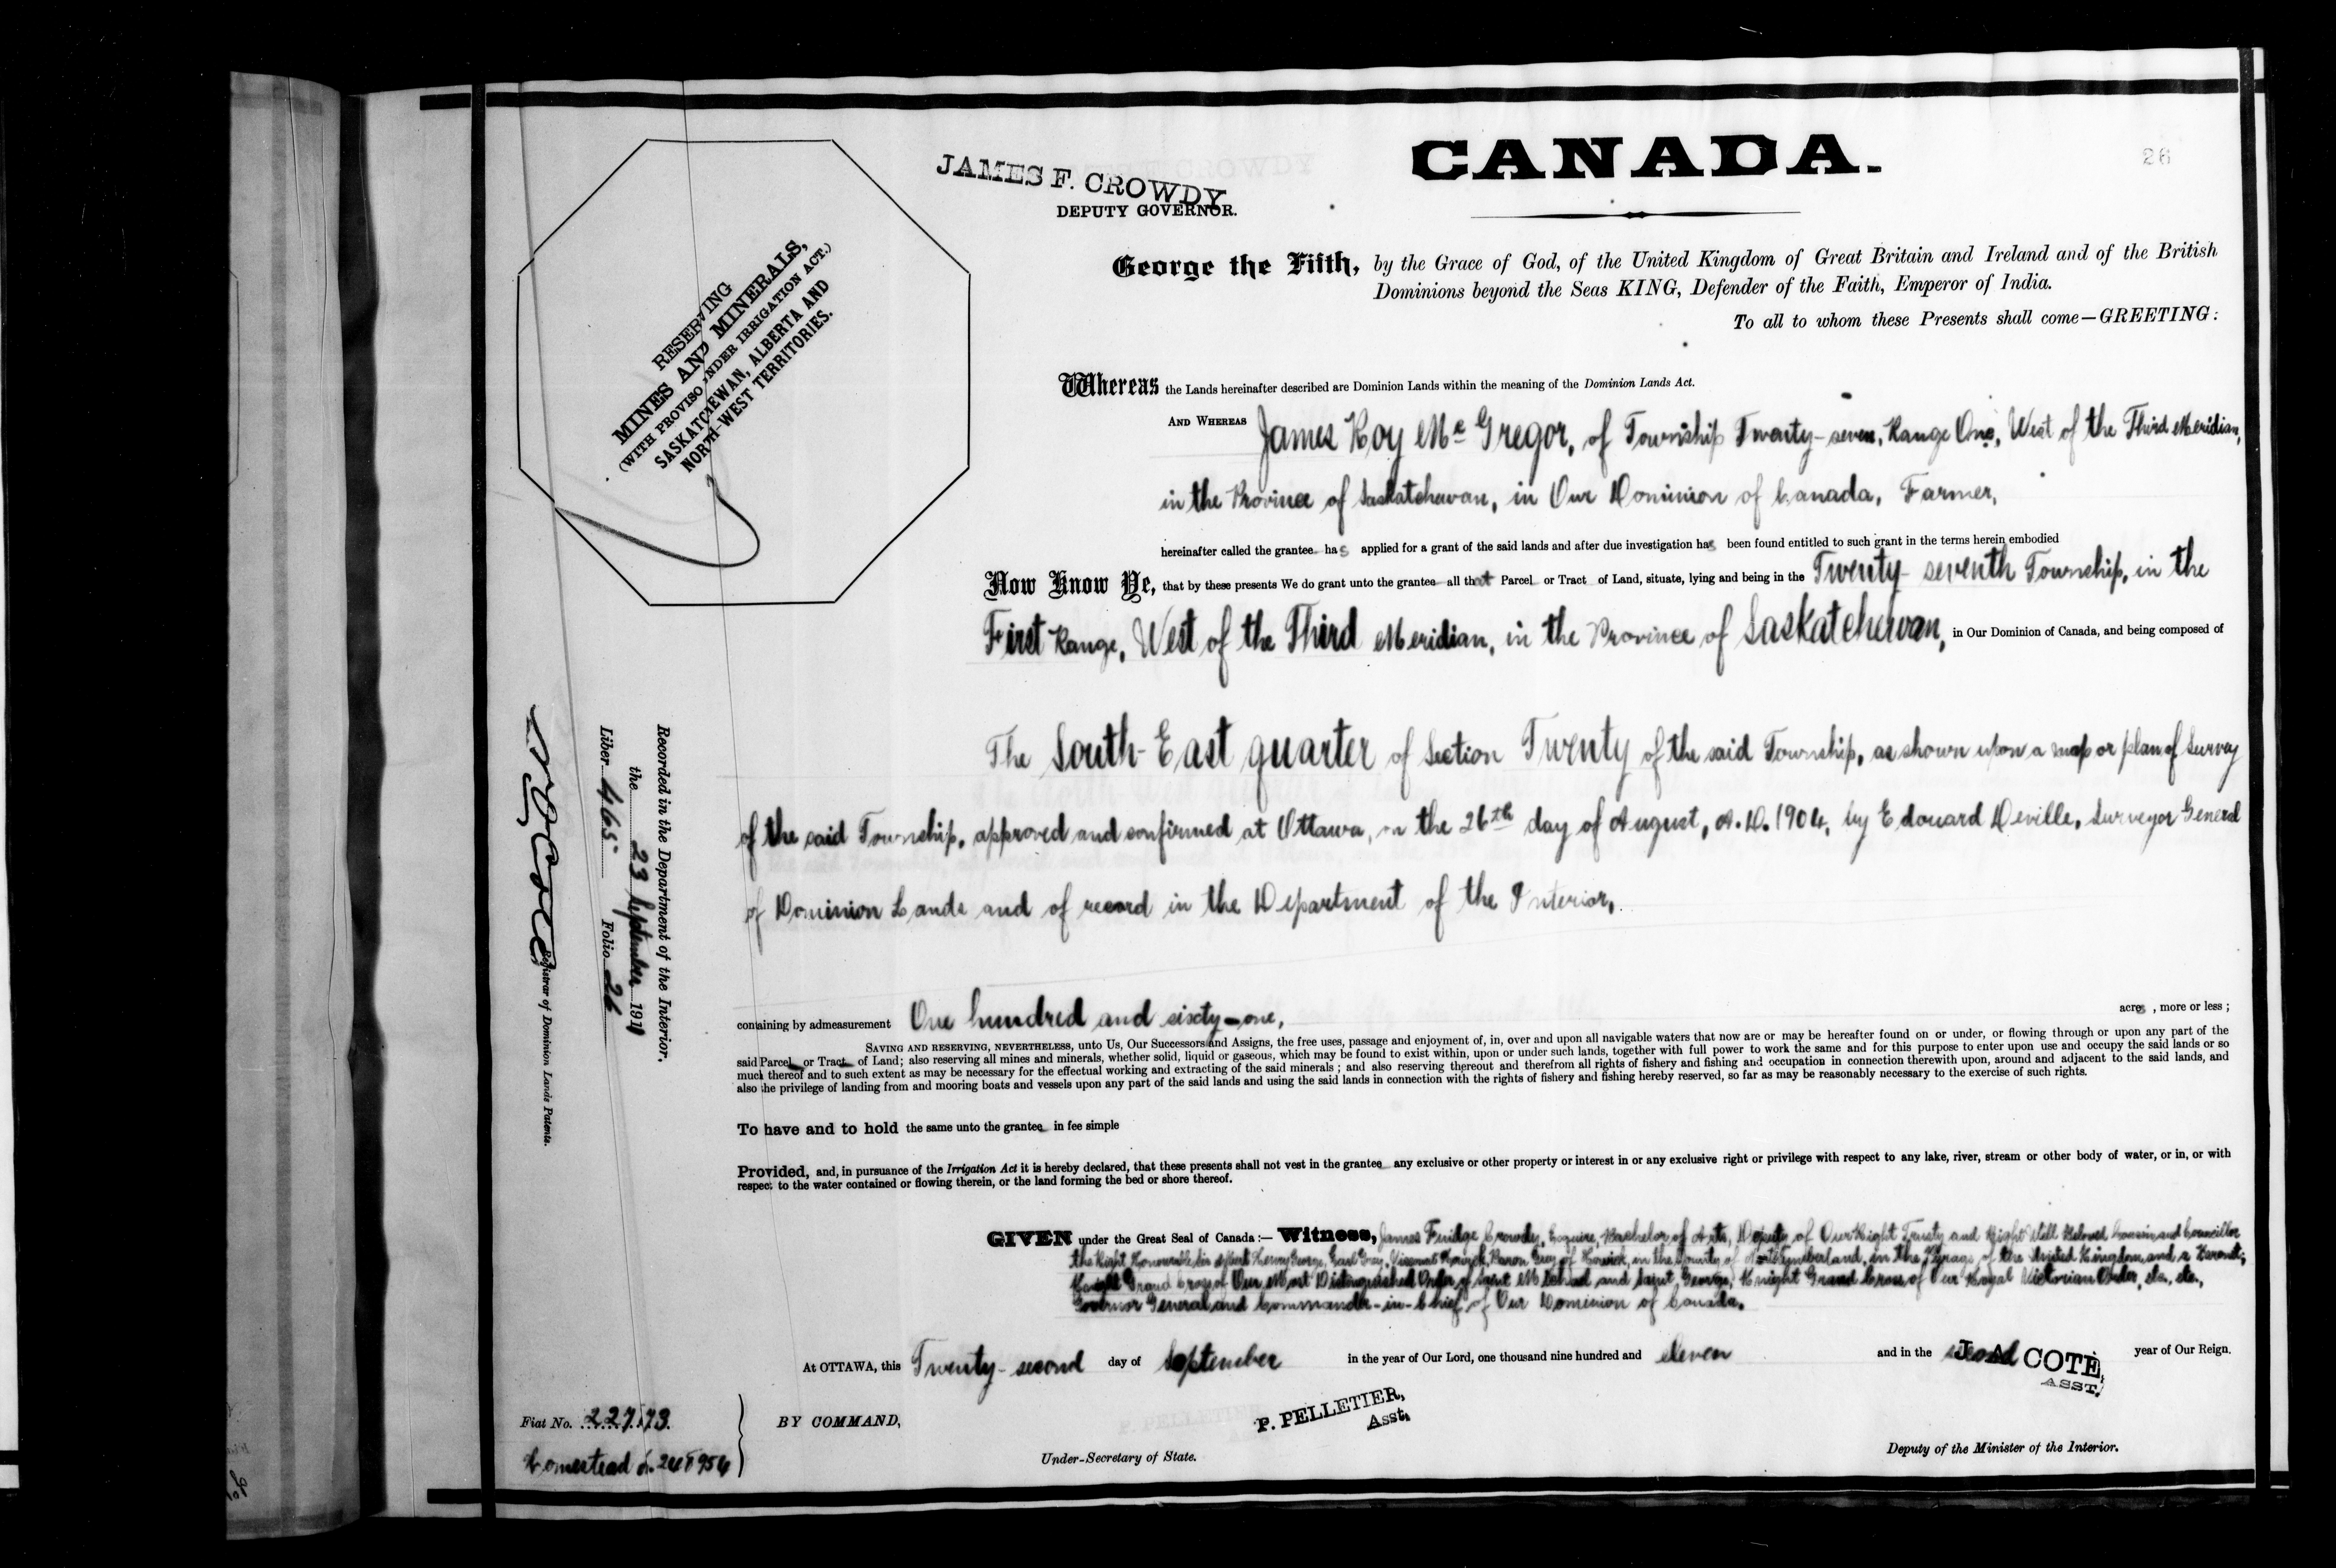 CANADA.
26
JAMES F. CROWDY
DEPUTY GOVERNOR.
RESERVING
MINES AND MINERALS,
(WITH PROVISO UNDER IRRIGATION ACT.)
SASKATCHEWAN, ALBERTA AND
NORTH-WEST TERRITORIES.
George the Fifth, by the Grace of God, of the United Kingdom of Great Britain and Ireland and of the British
Dominions beyond the Seas KING, Defender of the Faith, Emperor of India.
To all to whom these Presents shall come—GREETING:
Whereas the Lands hereinafter described are Dominion Lands within the meaning of the Dominion Lands Act.
AND WHEREAS James Roy McGregor, of Township Twenty-seven, Range One, West of the Third Meridian,
in the Province of Saskatchewan, in Our Dominion of Canada, Farmer,
hereinafter called the grantee has applied for a grant of the said lands and after due investigation has been found entitled to such grant in the terms herein embodied
Now Know Ye, that by these presents We do grant unto the grantee all that Parcel or Tract of Land, situate, lying and being in the Twenty-seventh Township, in the
First Range, West of the Third Meridian, in the Province of Saskatchewan, in Our Dominion of Canada, and being composed of
The South-East quarter of Section Twenty of the said Township, as shown upon a map or plan of Survey
of the said Township, approved and confirmed at Ottawa, on the 26th day of August, A.D. 1904, by Edouard Deville, Surveyor General
of Dominion Lands and of record in the Department of the Interior,
containing by admeasurement One hundred and sixty-one, acres, more or less;
SAVING AND RESERVING, NEVERTHELESS, unto Us, Our Successors and Assigns, the free uses, passage and enjoyment of, in, over and upon all navigable waters that now are or may be hereafter found on or under, or flowing through or upon any part of the
said Parcel or Tract of Land; also reserving all mines and minerals, whether solid, liquid or gaseous, which may be found to exist within, upon or under such lands, together with full power to work the same and for this purpose to enter upon use and occupy the said lands or so
much thereof and to such extent as may be necessary for the effectual working and extracting of the said minerals; and also reserving thereout and therefrom all rights of fishery and fishing and occupation in connection therewith upon, around and adjacent to the said lands, and
also the privilege of landing from and mooring boats and vessels upon any part of the said lands and using the said lands in connection with the rights of fishery and fishing hereby reserved, so far as may be reasonably necessary to the exercise of such rights.
To have and to hold the same unto the grantee in fee simple
Provided, and, in pursuance of the Irrigation Act it is hereby declared, that these presents shall not vest in the grantee any exclusive or other property or interest in or any exclusive right or privilege with respect to any lake, river, stream or other body of water, or in, or with
respect to the water contained or flowing therein, or the land forming the bed or shore thereof.
GIVEN under the Great Seal of Canada:— Witness, James Fuidge Crowdy, Esquire, Bachelor of Arts, Deputy of Our Right Trusty and Right Well Beloved Cousin and Councillor
the Right Honourable Sir Albert Henry George, Earl Grey, Viscount Howick, Baron Grey of Howick, in the County of Northumberland, in the Peerage of the United Kingdom and a Baronet;
Knight Grand Cross of Our Most Distinguished Order of Saint Michael and Saint George, Knight Grand Cross of Our Royal Victorian Order, etc., etc.,
Governor General and Commander-in-Chief of Our Dominion of Canada.
At OTTAWA, this Twenty-second day of September in the year of Our Lord, one thousand nine hundred and eleven and in the second year of Our Reign.
COTÉ,
ASST.
BY COMMAND,
P. PELLETIER,
Asst.
Under-Secretary of State.
Deputy of the Minister of the Interior.
Recorded in the Department of the Interior.
the 23 September 1911
Liber 465 Folio 26
Registrar of Dominion Lands Patents.
Fiat No. 227173.
Homestead